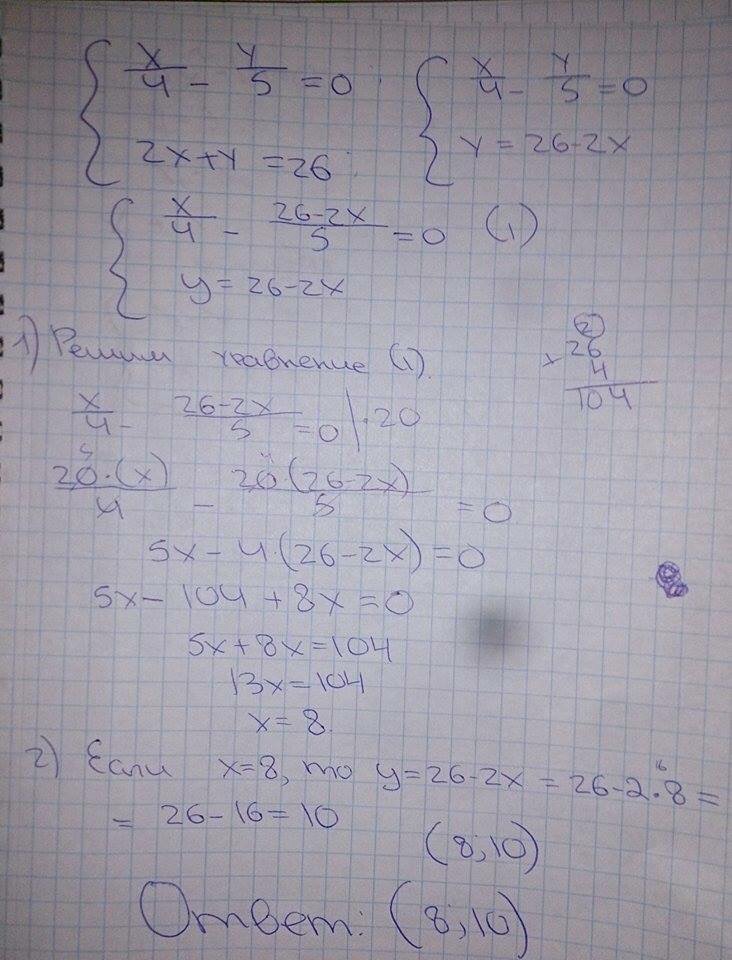 { x/4 - y/5 = 0 { x/4 - y/5 = 0
2x+y = 26 y = 26-2x
{ x/4 - (26-2x)/5 = 0 (1)
y = 26-2x
1) Решим уравнение (1).
x/4 - (26-2x)/5 = 0 | ·20
20·(x)/4 - 20·(26-2x)/5 = 0
5x - 4·(26-2x) = 0
5x - 104 + 8x = 0
5x+8x=104
13x=104
x=8.
2) Если x=8, то y=26-2x = 26-2·8 =
= 26-16=10
(8;10)
Ответ: (8;10)
2
26
× 4
104